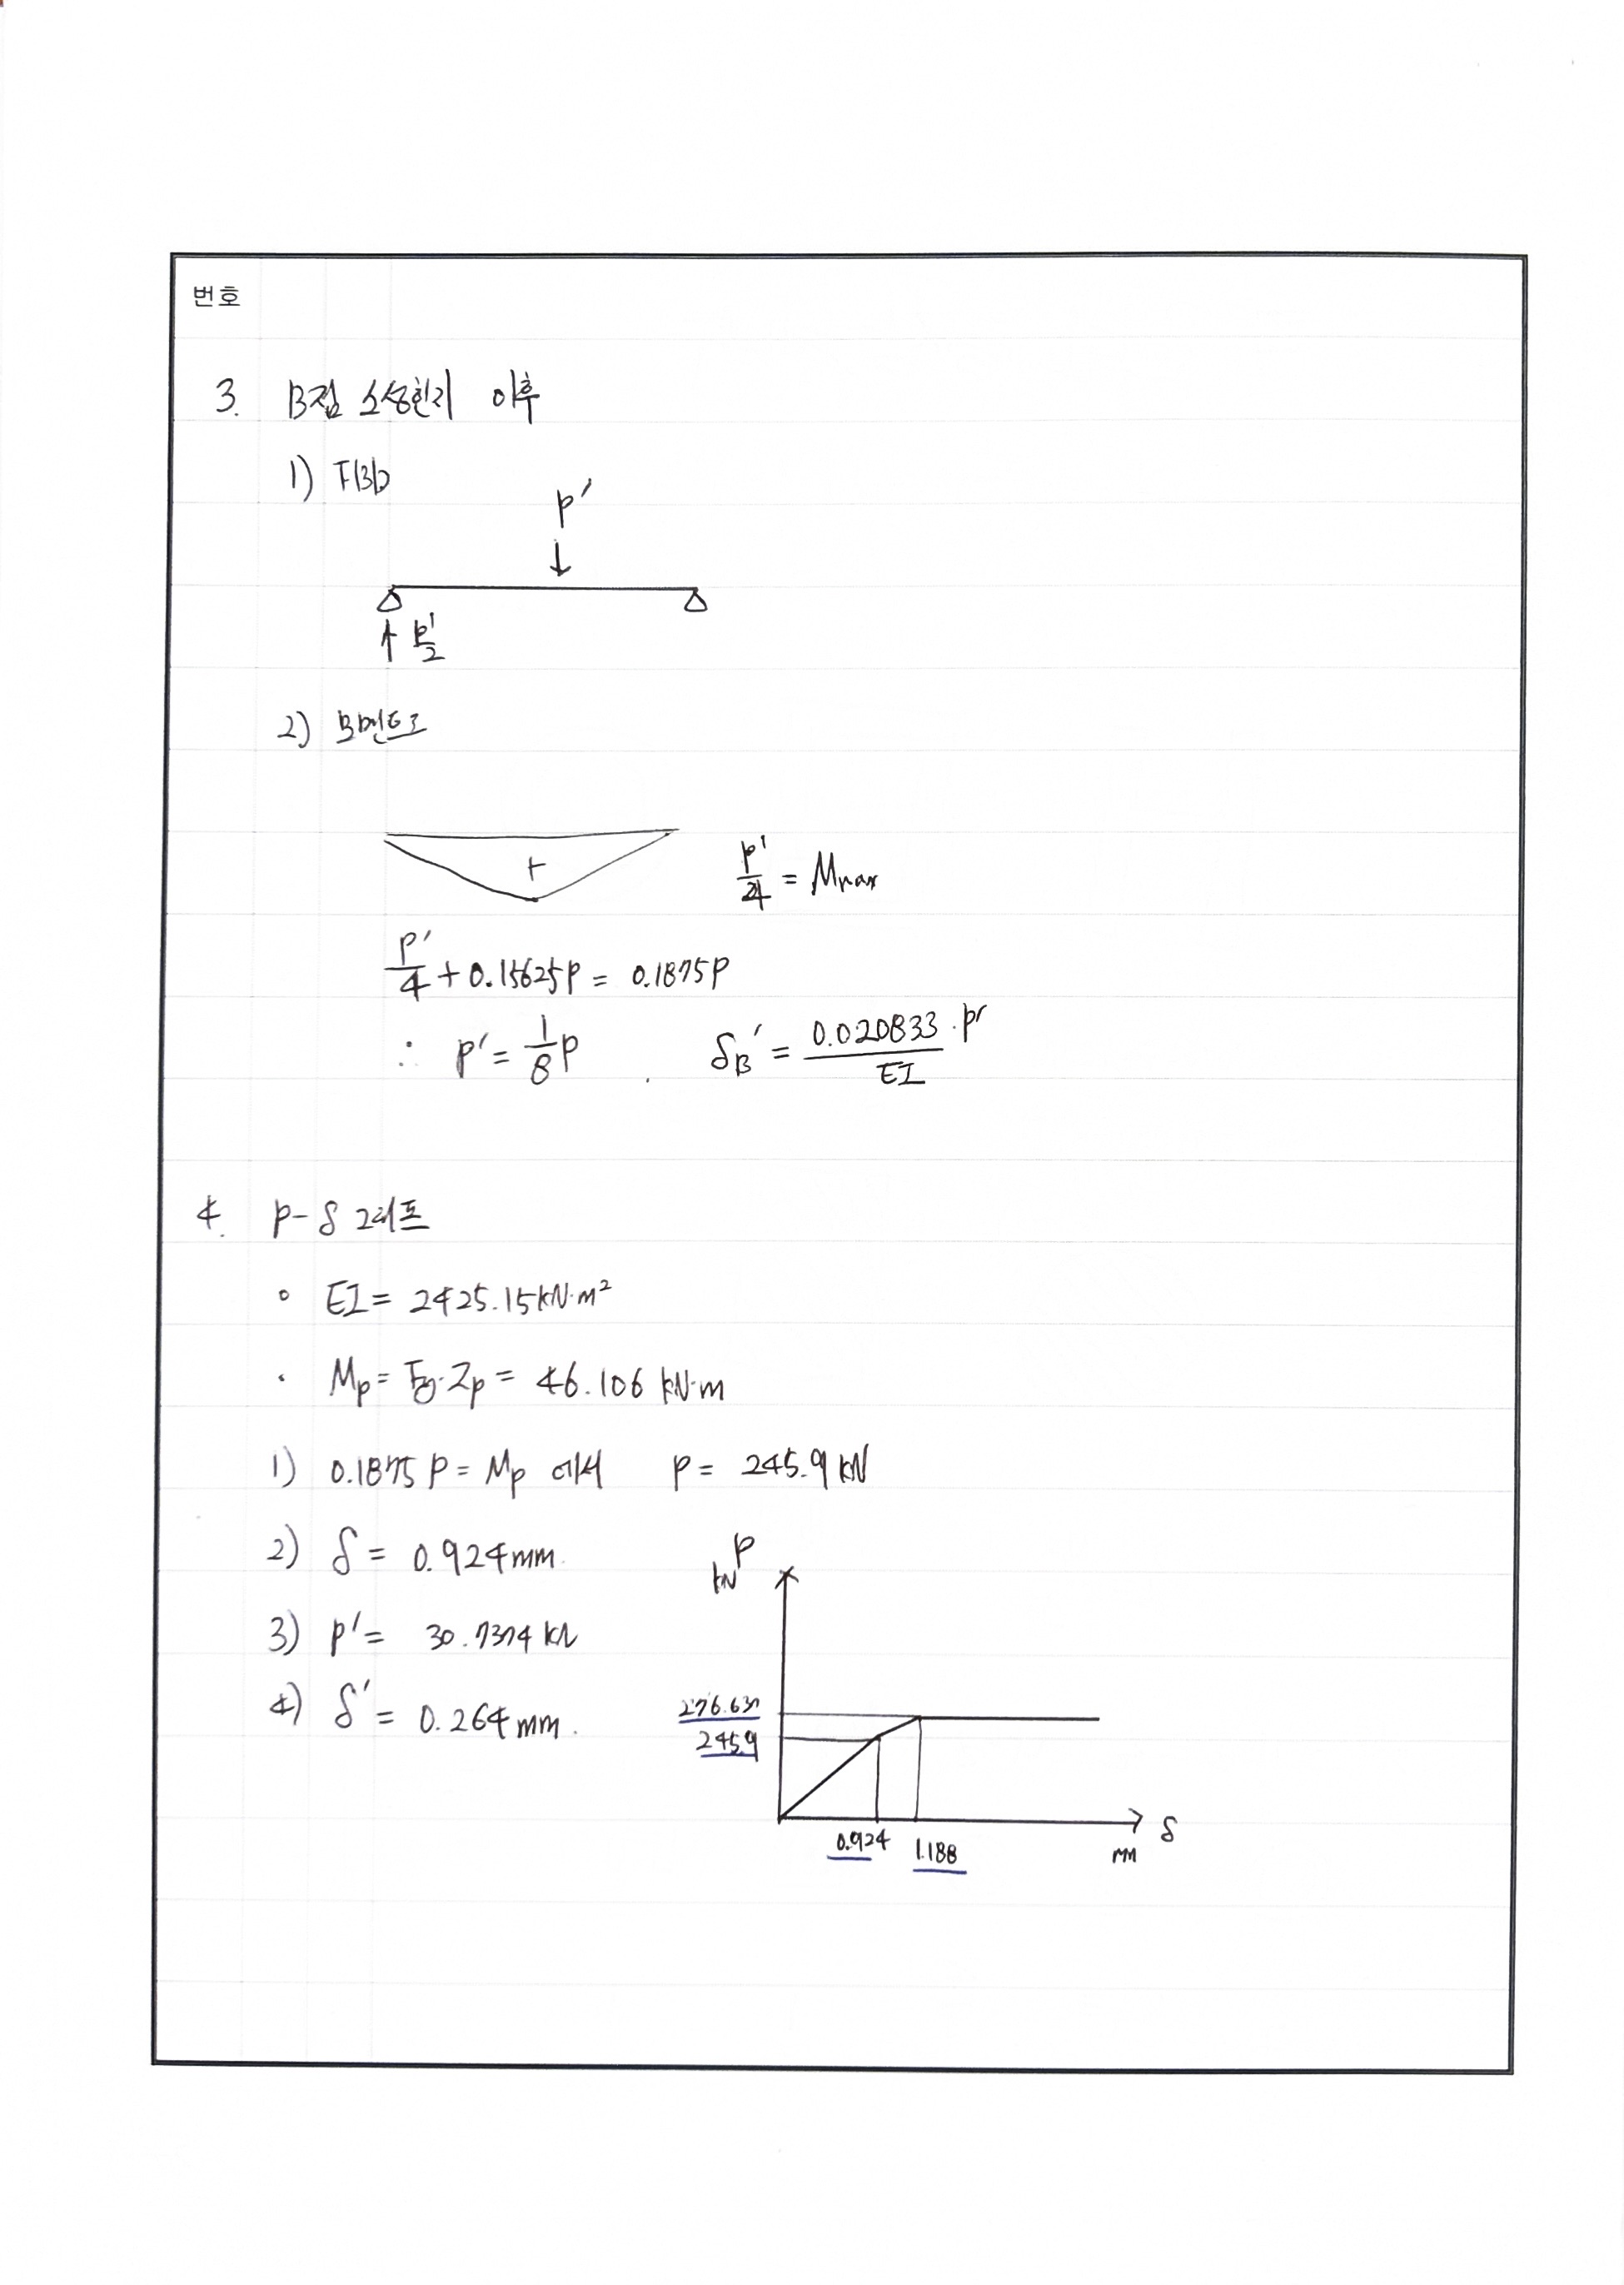 번호
3. B점 소성힌지 이후
1) FBD
P'
↑ P'/2
2) 모멘트도
+
P'/4 = Mmax
P'/4 + 0.15625P = 0.1875P
∴ P' = 1/8 P , δB' = 0.020833·P'/EI
4. P-δ 그래프
∘ EI = 2425.15kN·m²
· Mp = Fy·Zp = 46.106 kN·m
1) 0.1875 P = Mp 에서 P = 245.9 kN
2) δ = 0.924mm.
3) P' = 30.7374 kN
4) δ' = 0.264mm.
P
kN
276.637
245.9
0.924 1.188
δ
mm